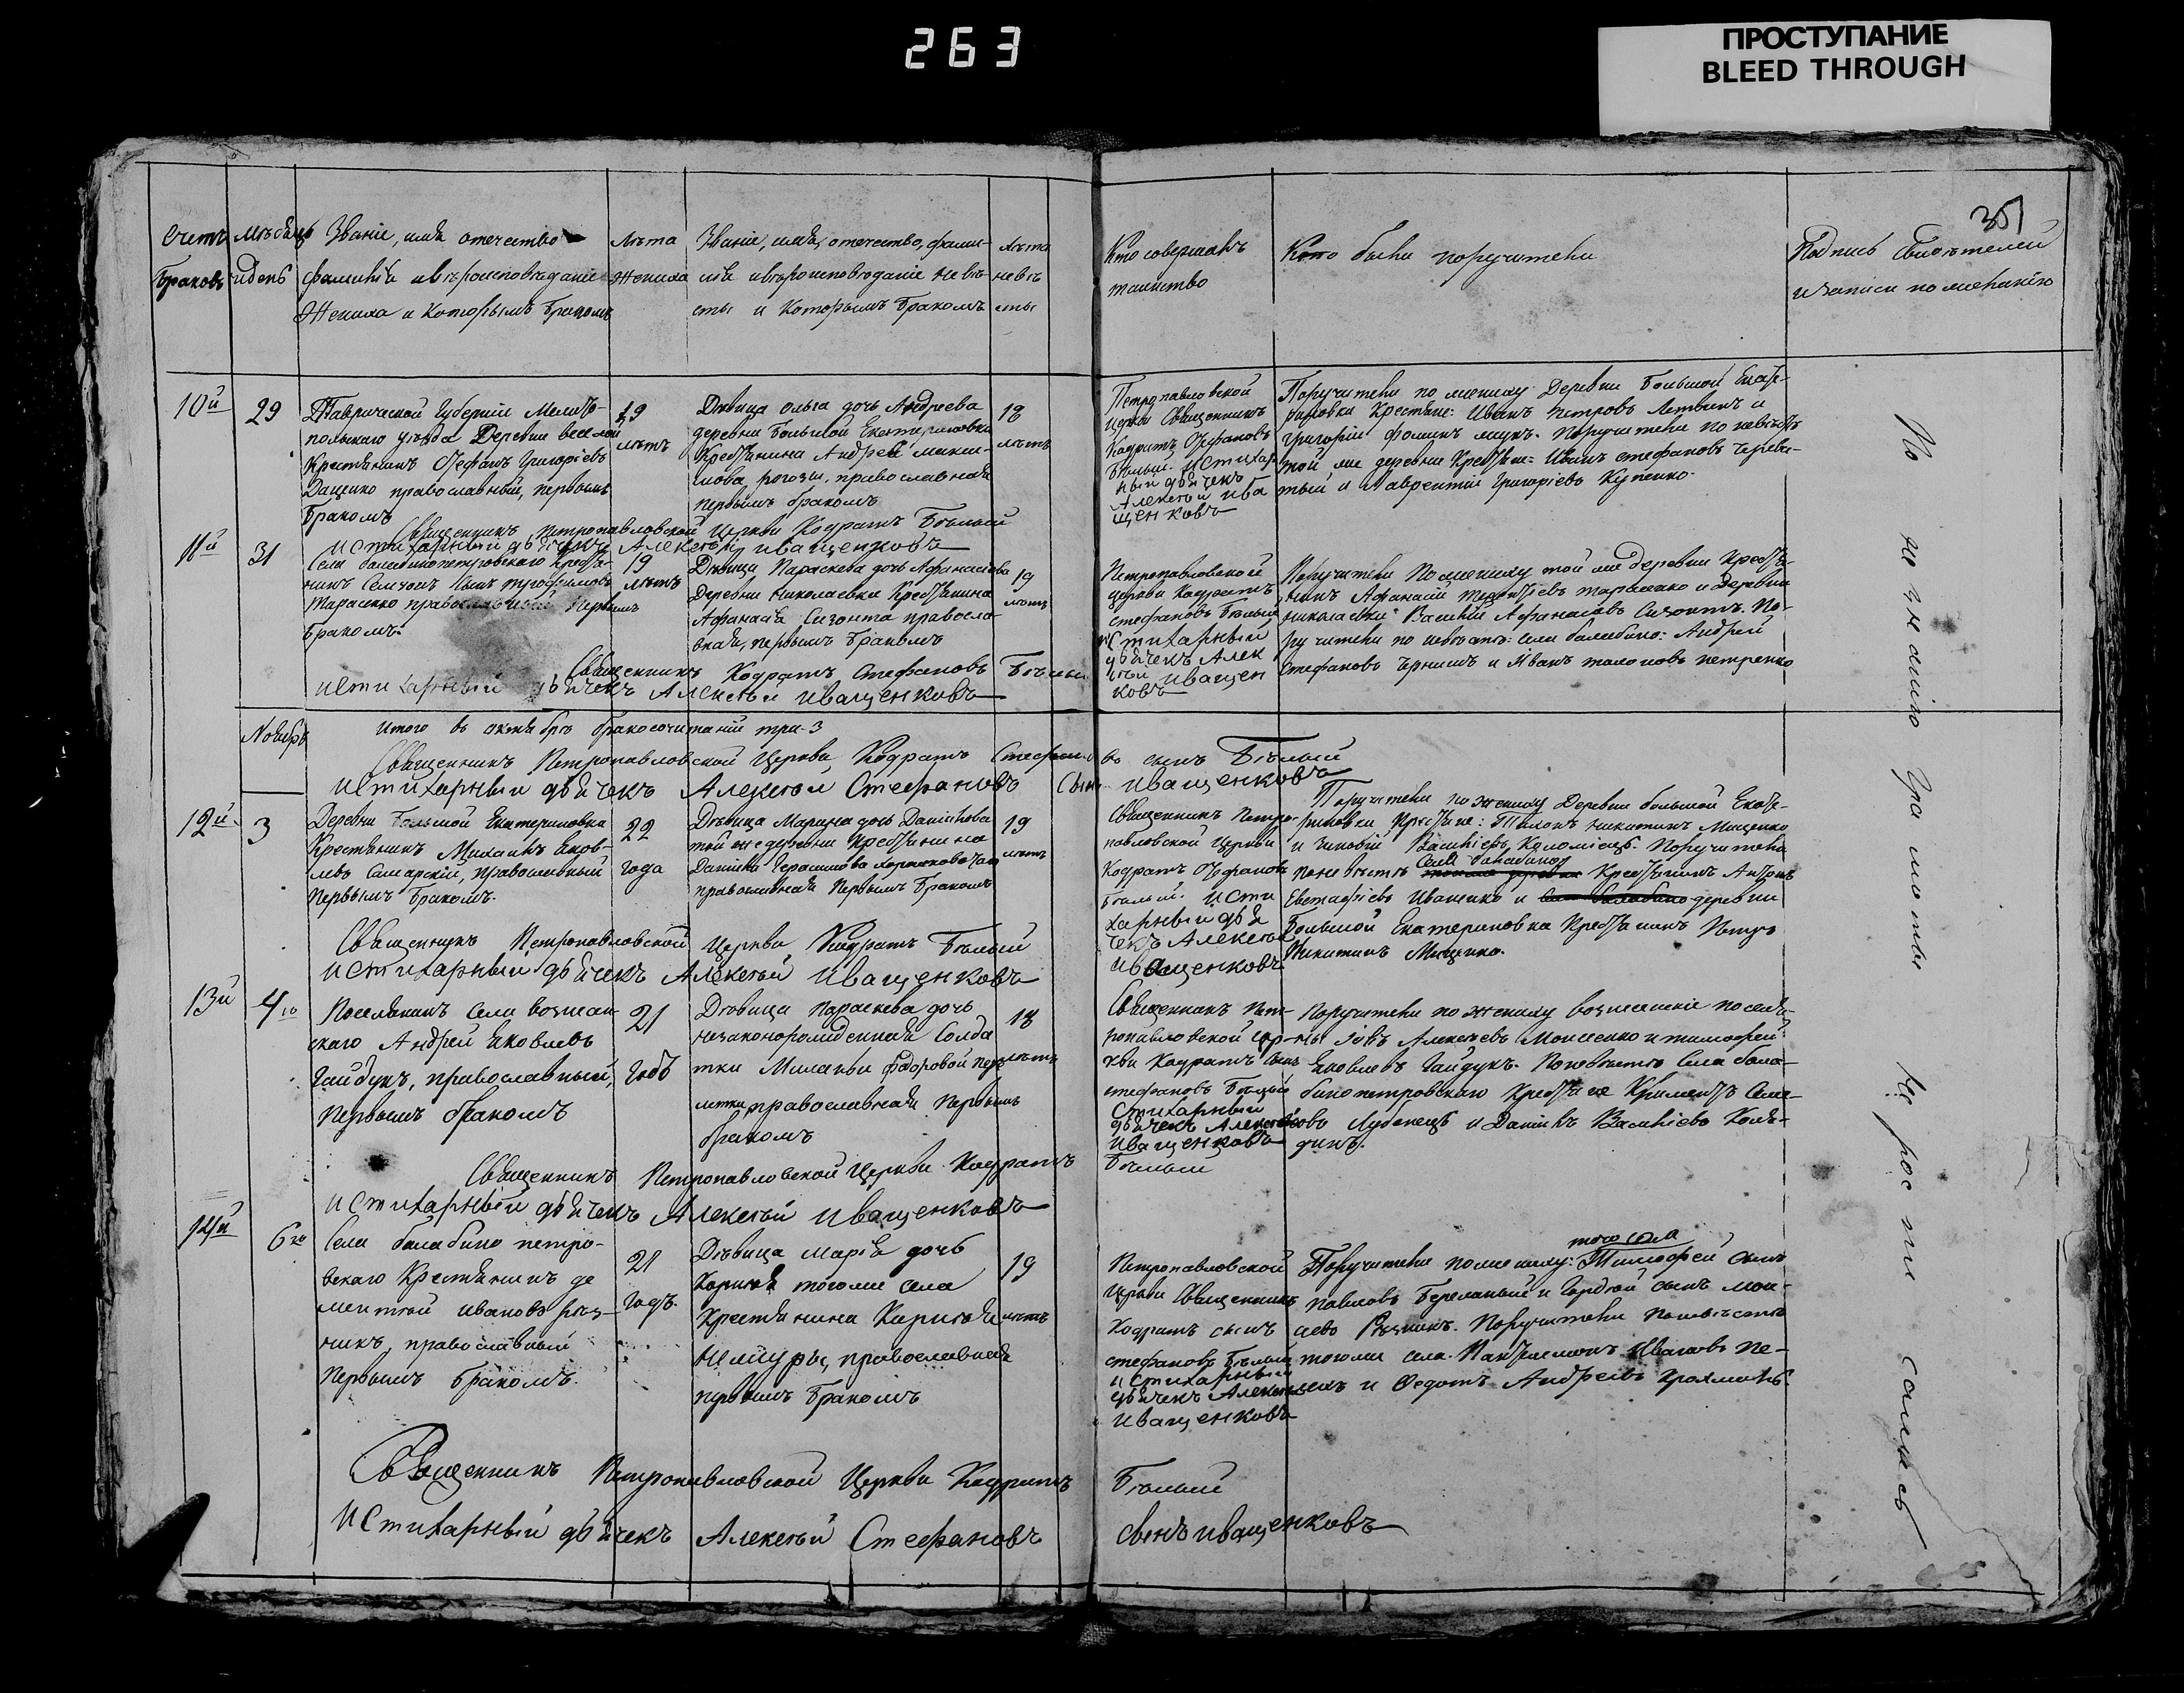 263
ПРОСТУПАНИЕ
BLEED THROUGH
351
Счетъ
Браковъ
Мѣсяцъ
и день
Званіе, имя отечество
фамилія и вѣроисповѣданіе
Жениха и которымъ бракомъ
Лѣта
Жениха
Званіе, имя, отечество, фами-
лія и вѣроисповѣданіе невѣ-
сты и которымъ бракомъ
лѣта
невѣ
сты
Кто совершалъ
таинство
Кто были поручители
Подпись свидѣтелей
и записи по желанію
10й
29
Таврической Губерніи Мелито-
польскаго уѣзда Деревни веселой
Крестьянинъ Стефанъ Григоріевъ
Даценко православный, первымъ
бракомъ
19
лѣтъ
Дѣвица Ольга дочь Андреева
деревни Большой Екатериновки
Крестьянина Андрея макси-
мова рогозы, православная
первымъ бракомъ
18
лѣтъ
Петропавловской
Церкви Священникъ
Кодратъ Стефановъ
Бѣлый. и стихар
ный дьячекъ
Алексѣй ива
щенковъ
Поручители по жениху Деревни Большой Екате-
риновки Крестьяне: Иванъ Петровъ Летвинъ и
григорій фоминъ лещъ. Поручители по невѣстѣ
той же деревни Крестьяне: Иванъ стефановъ Череви-
тый и Лаврентій Григоріевъ Купенко
Священникъ Петропавловской Церкви Кодратъ Бѣлый
и стихарный дьячекъ Алексѣй иващенковъ
11й
31
Села балабинопетровскаго крестья-
нинъ Семіонъ сынъ трофимовъ
Тарасенко православный первымъ
бракомъ.
19
лѣтъ
Дѣвица Параскева дочь Афанасіева
Деревни Николаевки Крестьянина
Афанасія Сизонта правосла-
вная, первымъ бракомъ
19
лѣтъ
Петропавловской
церкви Кодратъ
стефановъ Бѣлый
и стихарный
дьячекъ Алек
сѣй иващен
ковъ
Поручители по жениху той же деревни Крестья-
нинъ Афанасій терентіевъ тарасенко и Деревни
николаевки Василій Афанасіевъ Сизонтъ. По-
ручители по невѣстѣ: села балабино: Андрей
Стефановъ Чернишъ и Иванъ мало новъ петренко
Священникъ Кодратъ Стефановъ Бѣлый
и стихарный дьячекъ Алексѣй иващенковъ
Ноябрь
Итого въ октябрѣ бракосочитаній три. 3
Священникъ Петропавловской Церкви Кодратъ Стефановъ сынъ Бѣлый
и стихарный дьячекъ Алексѣй Стефановъ Сынъ иващенковъ
12й
3
Деревни Большой Екатериновки
Крестьянинъ Михаилъ Яков-
левъ Самарскій, православный
первымъ бракомъ.
22
года
Дѣвица Марина дочь Даніилова
той же деревни Крестьянина
Даніила Герасимова
православная первымъ бракомъ
19
лѣтъ
Священникъ Петро-
павловской Церкви
Кодратъ Стефановъ
Бѣлый. и сти
харный дья
чекъ Алексѣй
иващенковъ
Поручители по жениху Деревни большой Екате-
риновки Крестьяне: Никитинъ Мищенко
и Зиновій Василіевъ Коломіецъ. Поручители
по невѣстѣ Села балабино Крестьянинъ Антонъ
Евстафіевъ Иваненко и деревни
Большой Екатериновка Крестьянинъ Петръ
Никитинъ Мищенко.
Священникъ Петропавловской Церкви Кодратъ Бѣлый
и стихарный дьячекъ Алексѣй иващенковъ
13й
4го
Поселянинъ села вознесен-
скаго Андрей Яковлевъ
Гайдукъ, православный,
первымъ бракомъ
21
годъ
Дѣвица Параскева дочь
незаконорожденная Солда
тки Меланьи федоровой
православная первымъ
бракомъ
18
лѣтъ
Священникъ Пет-
ропавловской цер-
кви Кодратъ сынъ
стефановъ Бѣлый
стихарный
дьячекъ Алексѣй
иващенковъ
Поручители по жениху вознесенскіе поселя-
ны Іовъ Алексѣевъ Моисеенко и тимофей
Яковлевъ Гайдукъ. По невѣстѣ Села бала-
бинопетровскаго Крестьяне Климентъ Семе-
новъ Лубенецъ и Даніилъ Василіевъ Коля-
динъ.
Священникъ Петропавловской Церкви Кодратъ Бѣлый
и стихарный дьячекъ Алексѣй иващенковъ
14й
6го
Села балабино петро-
вскаго Крестьянинъ де
ментій ивановъ рѣз-
никъ, православный
первымъ бракомъ.
21
годъ.
Дѣвица Марія дочь
Корнія тогоже села
Крестьянина Корнія
православная
первымъ бракомъ
19
лѣтъ
Петропавловской
Церкви Священникъ
Кодратъ сынъ
стефановъ Бѣлый
и стихарный
дьячекъ Алексѣй
иващенковъ
того села
Поручители по жениху: Тимофей сынъ
павловъ Бережный и Гордѣй сынъ мои-
сеевъ Рѣзникъ. Поручители по невѣстѣ
тогоже села Пантелемонъ Ивановъ
и Федотъ Андреевъ
Священникъ Петропавловской Церкви Кодратъ Бѣлый
и стихарный дьячекъ Алексѣй Стефановъ сынъ иващенковъ
По не знанію грамоты не росписались